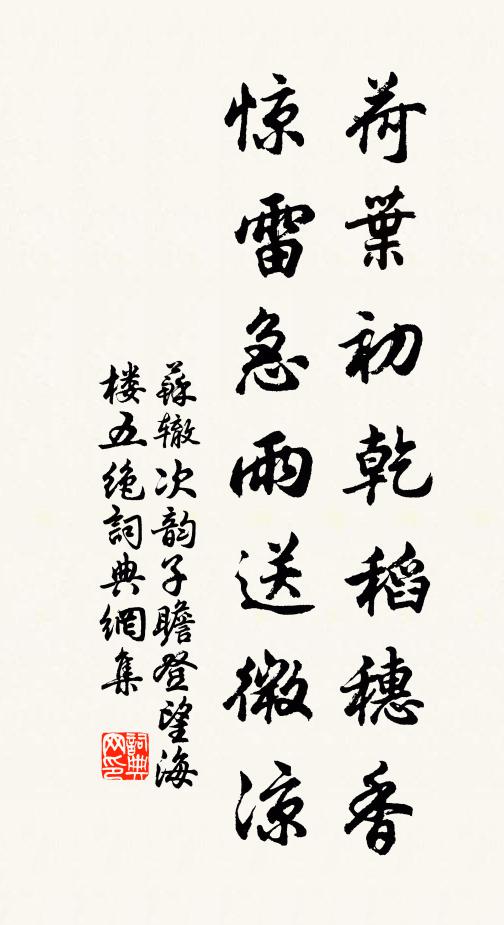 荷葉初乾稻穗香
惊雷急雨送微涼
蘇辙次韵子瞻登望海
楼五绝詞典網集
詞典网印